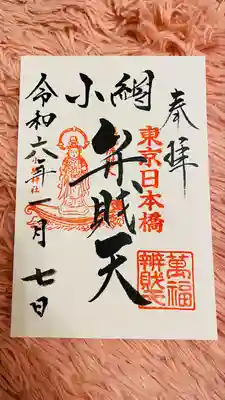 奉拝
東京日本橋
小網
弁賎天
萬福
辨財天
令和六年一月七日